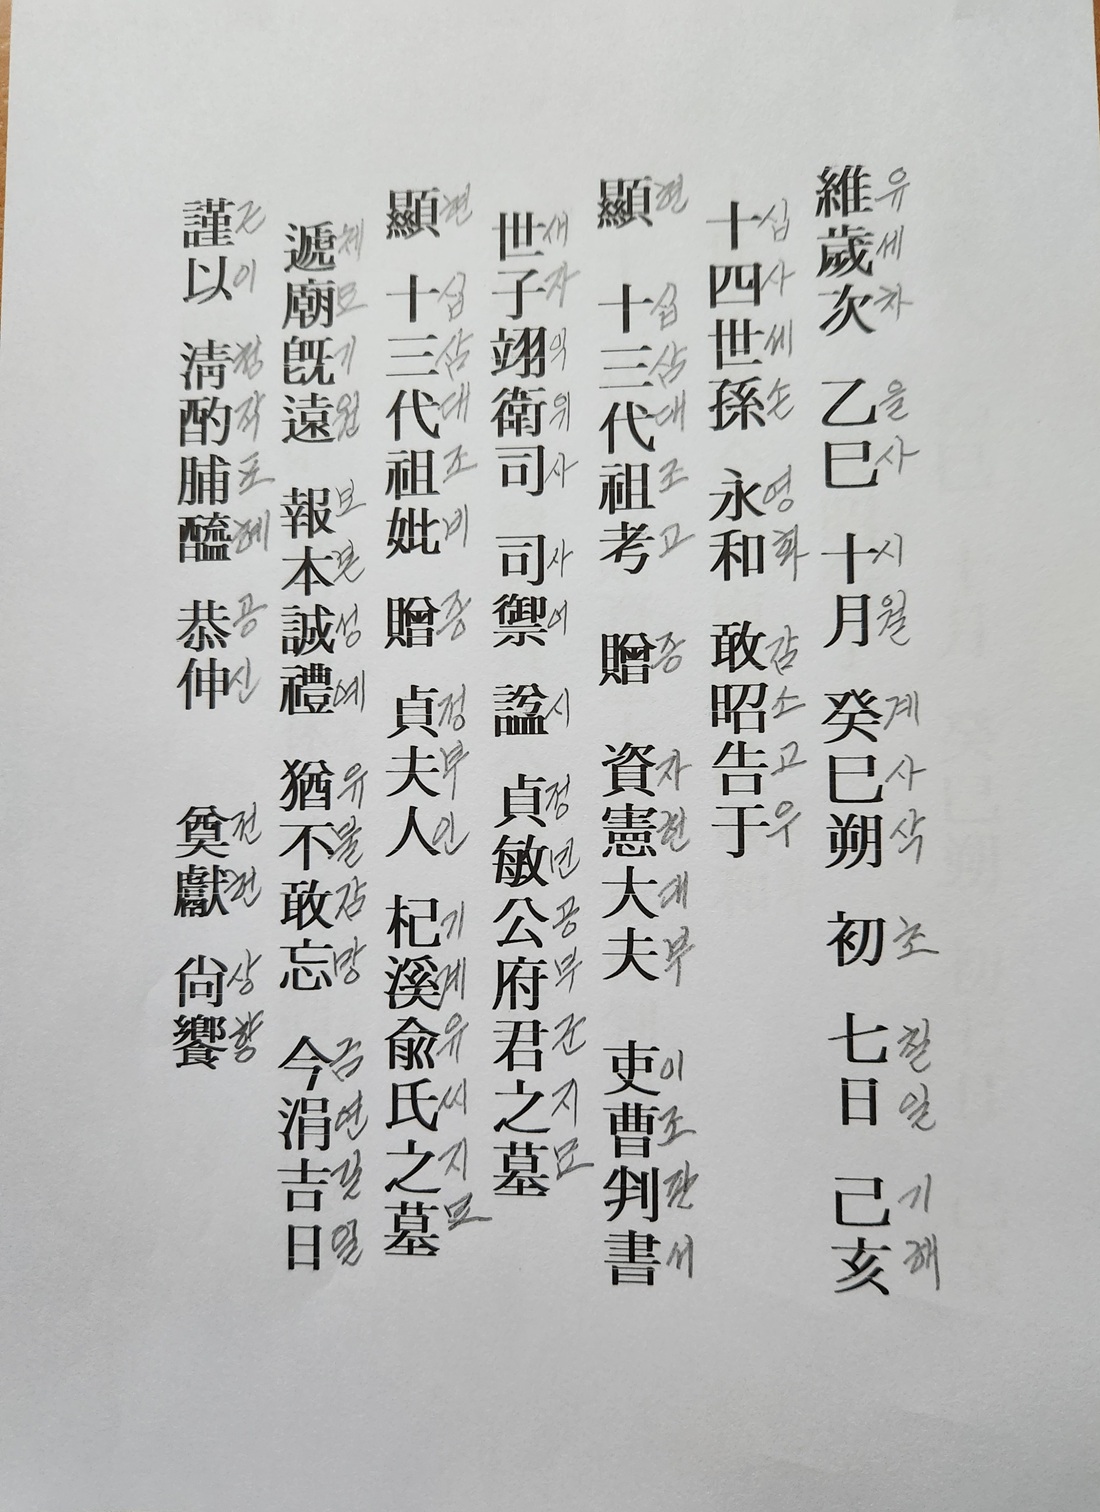 維歲次 乙巳 十月 癸巳朔 初 七日 己亥
유세차 을사 시월 계사삭 초 칠일 기해
十四世孫 永和 敢昭告于
십사세손 영화 감소고우
顯 十三代祖考 贈 資憲大夫 吏曹判書
현 십삼대조고 증 자헌대부 이조판서
世子翊衛司 司禦 諡 貞敏公府君之墓
세자익위사 사어 시 정민공부군지묘
顯 十三代祖妣 贈 貞夫人 杞溪兪氏之墓
현 십삼대조비 증 정부인 기계유씨지묘
遞廟旣遠 報本誠禮 猶不敢忘 今涓吉日
체묘기원 보본성예 유불감망 금연길일
謹以 淸酌脯醯 恭伸 奠獻 尙饗
근이 청작포혜 공신 전헌 상향